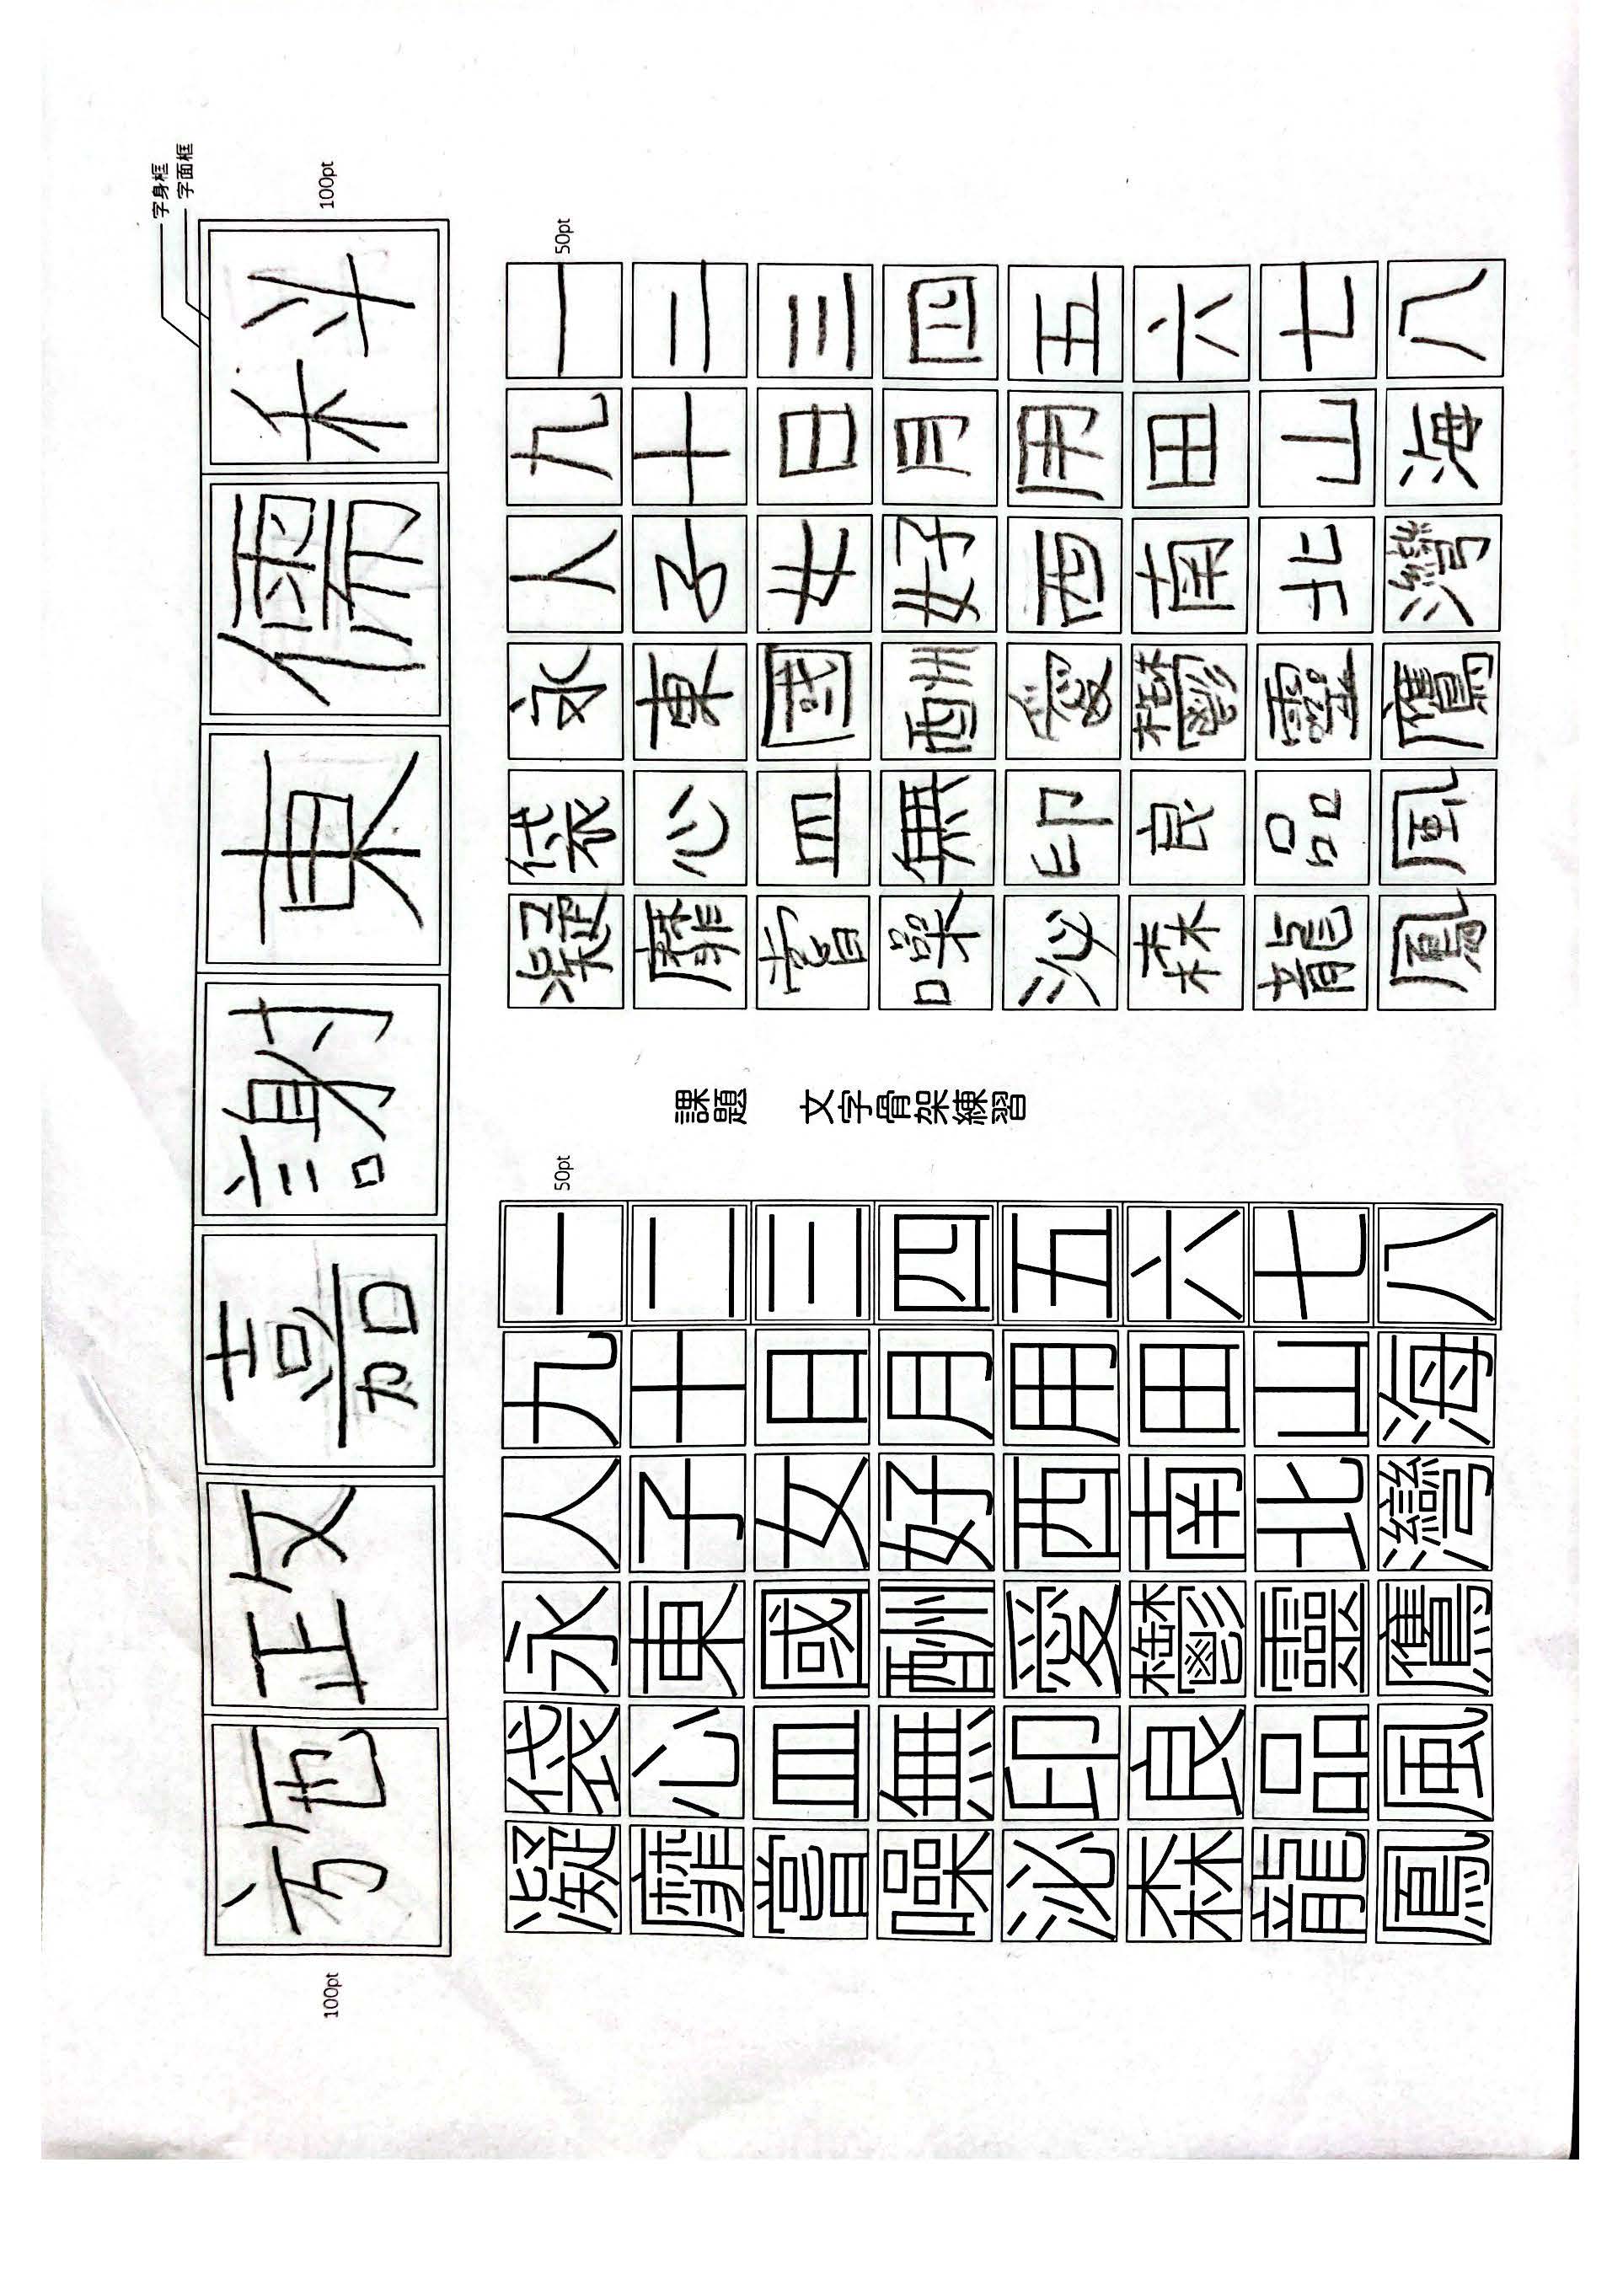 字身框
字面框
100pt
施政嘉謝東儒科
100pt
50pt
一二三四五六七八
九十日月用田山海
人子女好西南北灣
永東國酬愛鬱靈鷹
袋心皿無印良品風
凝靡嘗噪泌森龍鳳
課題 文字骨架練習
50pt
一二三四五六七八
九十日月用田山海
人子女好西南北灣
永東國酬愛鬱靈鷹
袋心皿無印良品風
凝靡嘗噪泌森龍鳳